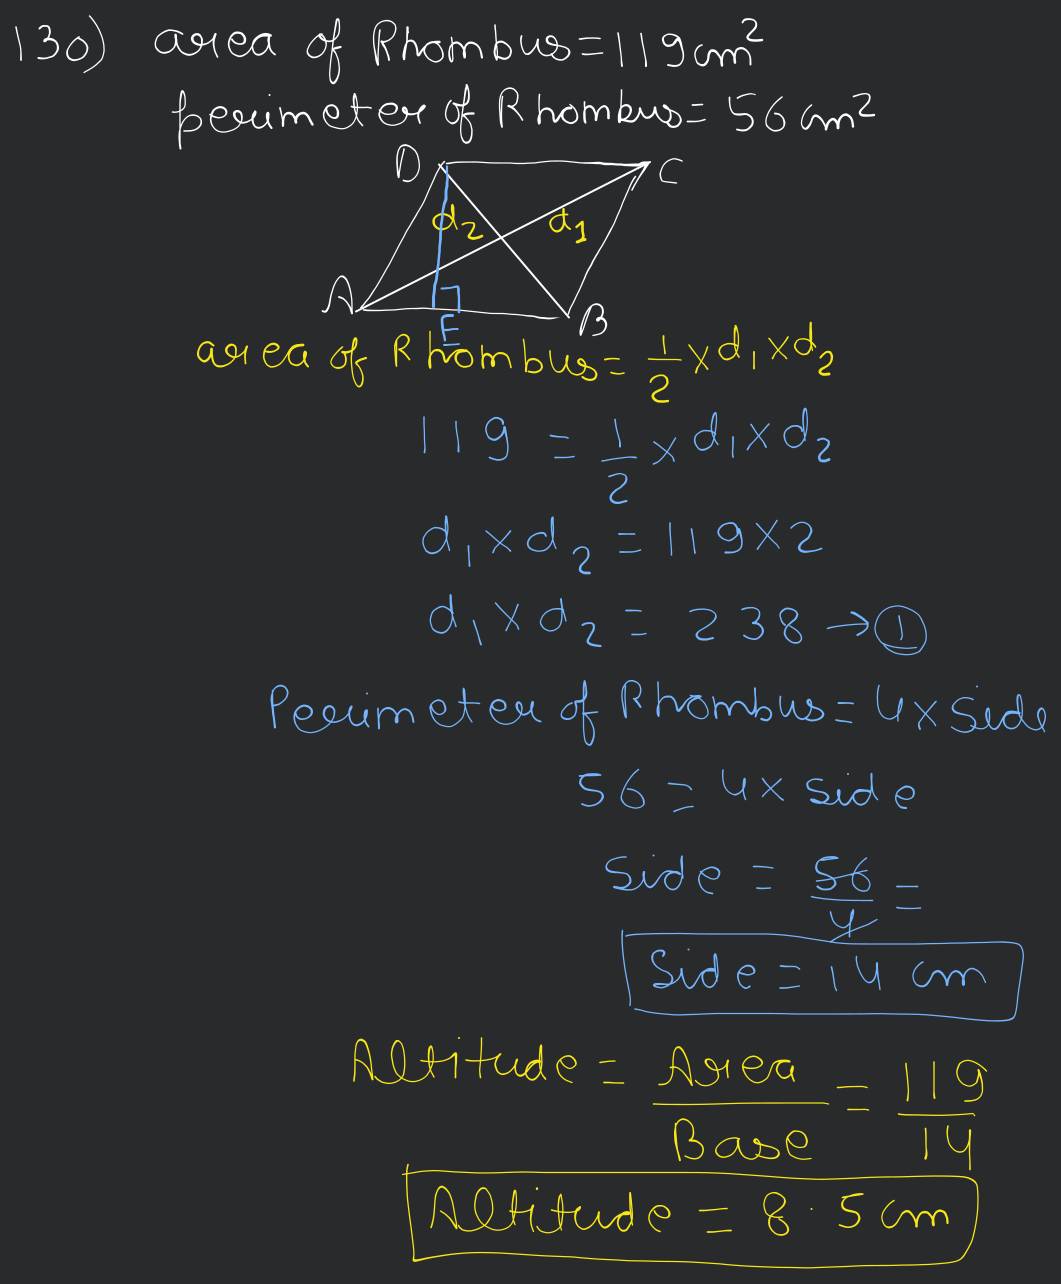 130) area of Rhombus = 119 cm²
perimeter of Rhombus = 56 cm²
D C
d₂ d₁
A B
E
area of Rhombus = 1/2 × d₁ × d₂
119 = 1/2 × d₁ × d₂
d₁ × d₂ = 119 × 2
d₁ × d₂ = 238 → ①
Perimeter of Rhombus = 4 × Side
56 = 4 × Side
Side = 56/4 =
Side = 14 cm
Altitude = Area/Base = 119/14
Altitude = 8.5 cm